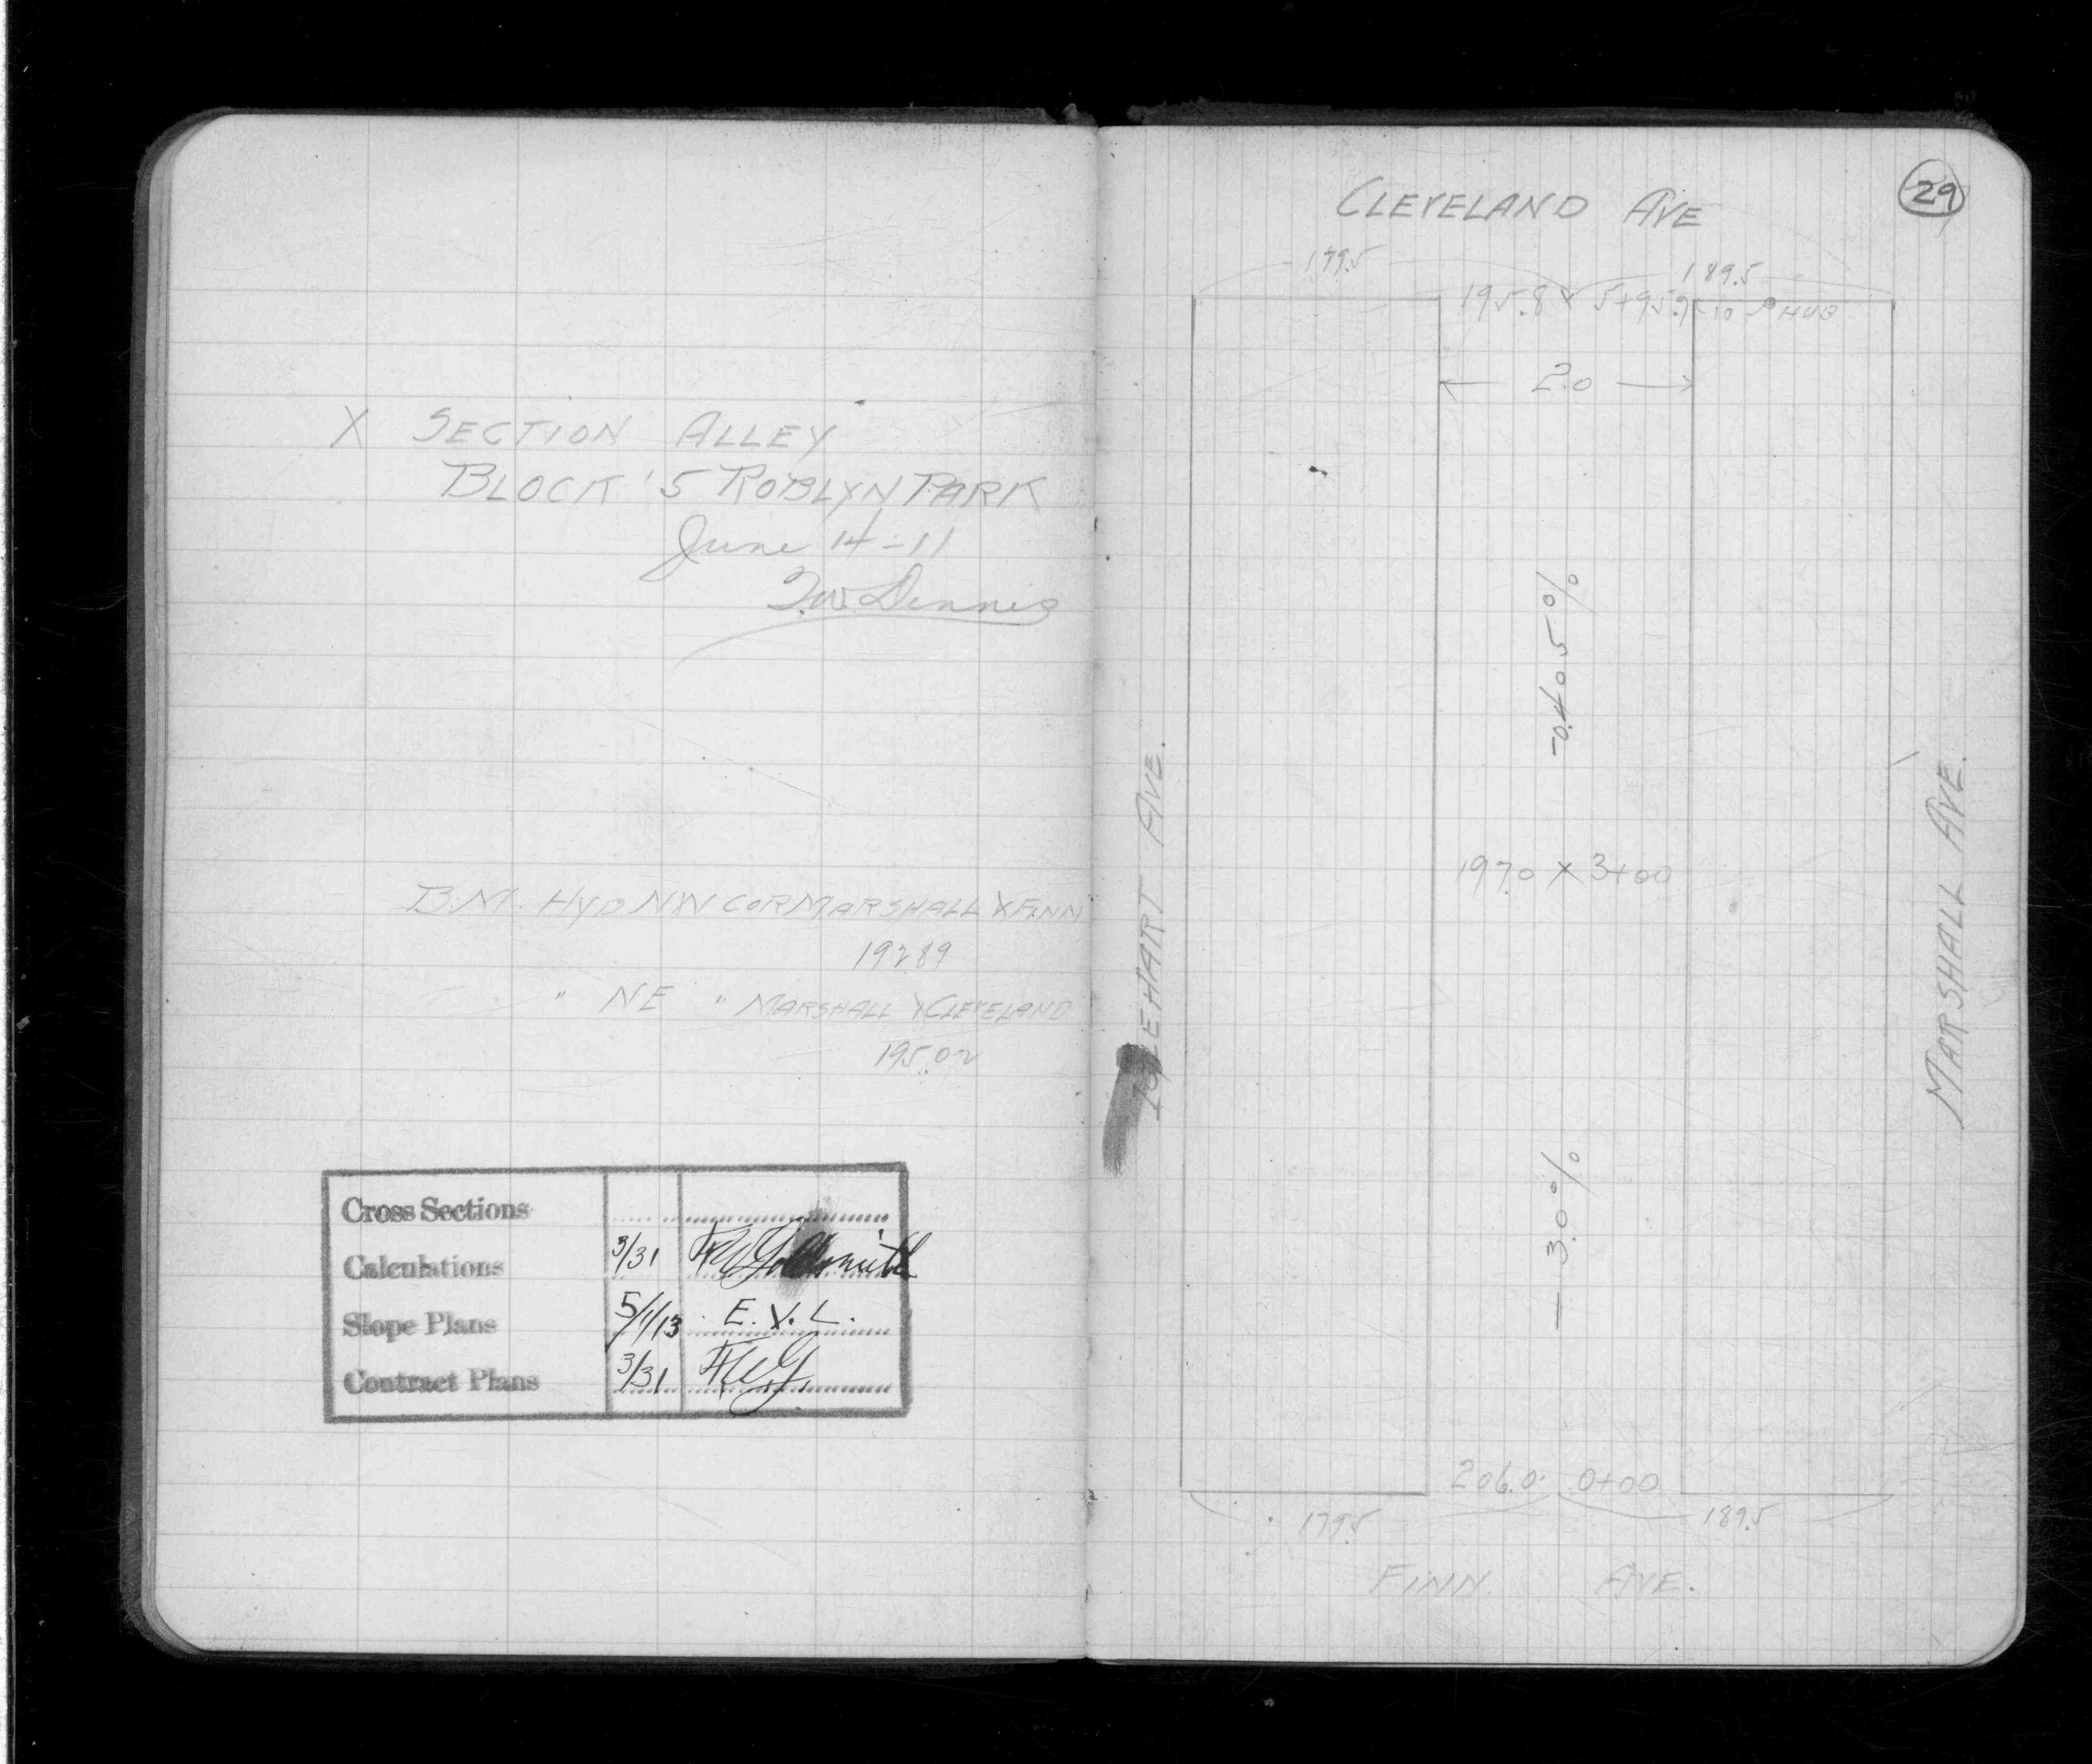 X SECTION ALLEY
BLOCK 5 ROBLYN PARK
June 14-11
T.W. Dennis
B.M. HYD NW COR MARSHALL X FINN
192.89
" NE " MARSHALL X CLEVELAND
195.02
Cross Sections
Calculations 3/31 F.W. Goldsmith
Slope Plans 5/1/13 E.V.L.
Contract Plans 3/31 F.W.G.
29
CLEVELAND AVE
179.5 189.5
195.8 X 5+95.9 10 HUB
20
-0.405%
IGLEHART AVE.
197.0 X 3+00
MARSHALL AVE.
-3.0%
206.0 0+00
179.5 189.5
FINN AVE.